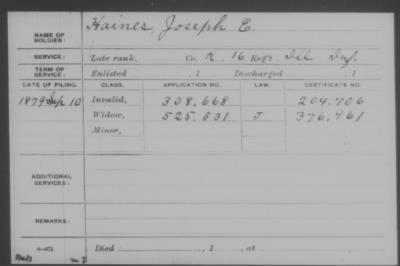 NAME OF SOLDIER: Haines, Joseph E.
SERVICE: Late rank, Co. K, 16 Reg't Ill Inf.
TERM OF SERVICE: Enlisted , 1 Discharged , 1
DATE OF FILING. CLASS. APPLICATION NO. LAW. CERTIFICATE NO.
1879 Sep 10 Invalid, 308,668 204,706
Widow, 525,531 J 376,961
Minor,
ADDITIONAL SERVICES:
REMARKS:
Died , 1 , at